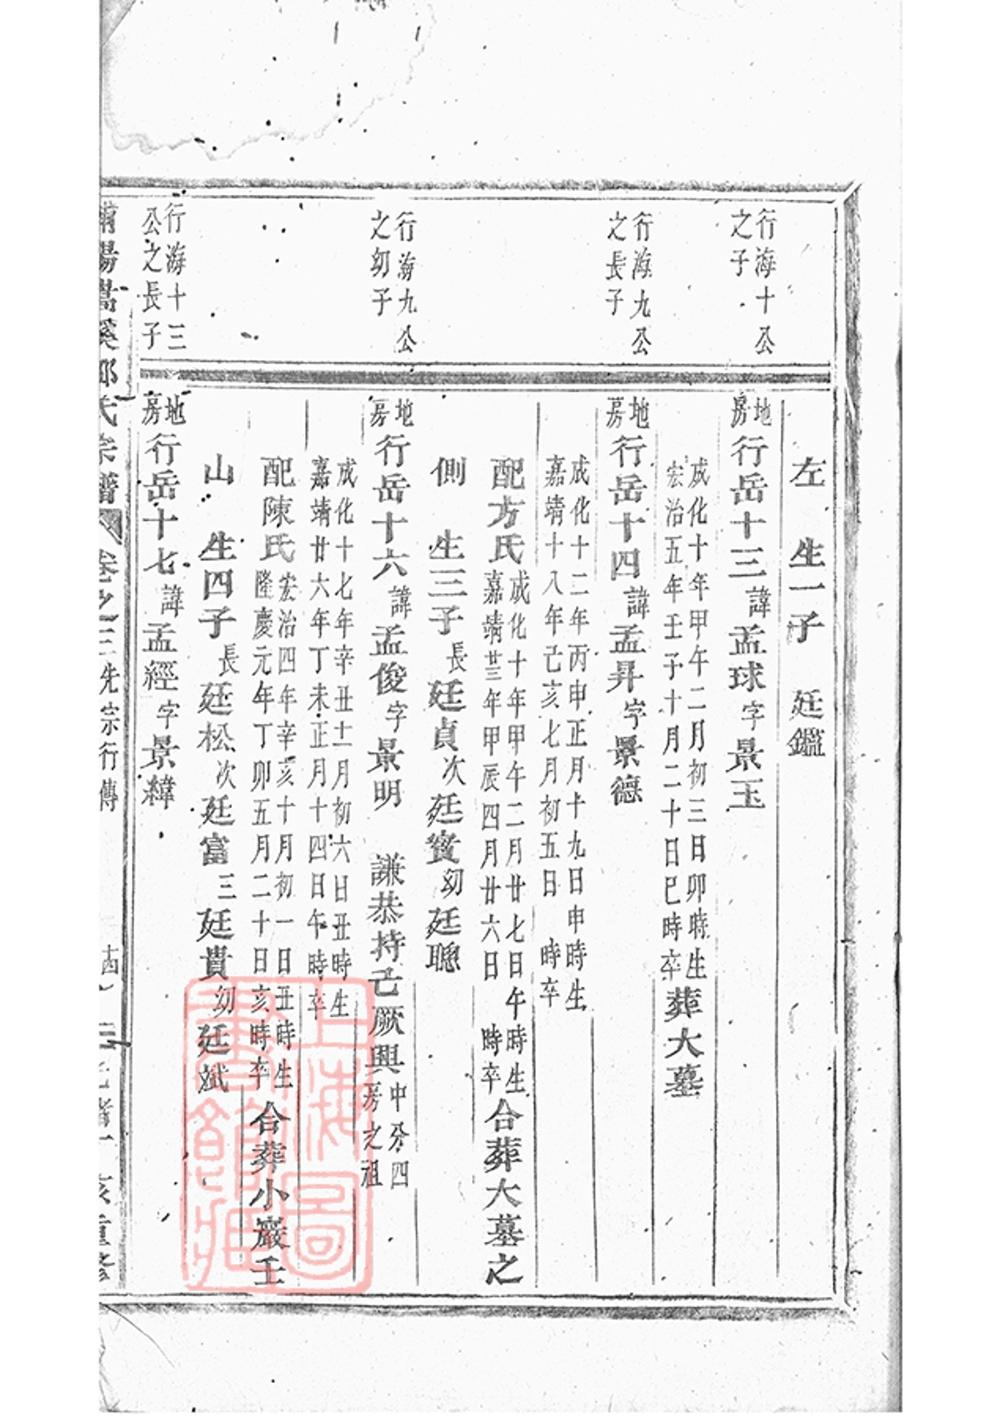 左　生一子　廷鑑
行海十公
之子
地房行岳十三諱孟球字景玉
成化十年甲午二月初三日卯時生
宏治五年壬子十月二十日巳時卒葬大墓
行海九公
之長子
地房行岳十四諱孟昇字景德
成化十二年丙申正月十九日申時生
嘉靖十八年己亥七月初五日　時卒
配方氏成化十年甲午二月廿七日午時生
嘉靖卅三年甲辰四月廿六日　時卒合葬大墓之
側　生三子長廷貞次廷賓幼廷聰
行海九公
之幼子
地房行岳十六諱孟俊字景明　謙恭持己厥興中分四
房之祖
成化十七年辛丑十一月初六日丑時生
嘉靖廿六年丁未正月十四日午時卒
配陳氏宏治四年辛亥十月初一日丑時生
隆慶元年丁卯五月二十日亥時卒合葬小巖壬
山　生四子長廷松次廷富三廷貴幼廷斌
行海十三
公之長子
地房行岳十七諱孟經字景緯
浦陽嵩溪邵氏宗譜　卷之三先宗行傳
上海圖書館藏